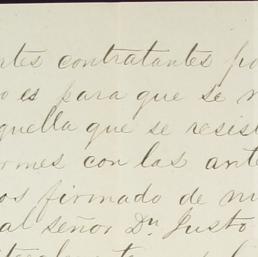 rtes contratantes po
o es para que se n
quella que se resist
ormes con las ante
os firmado de nu
al señor Dn Justo